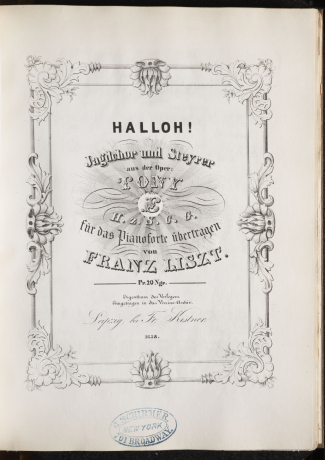 HALLOH!
Jagdchor und Steyrer
aus der Oper:
TONY
H. z. S. C. G.
für das Pianoforte übertragen
von
FRANZ LISZT.
Pr. 20 Ngr.
Eigenthum des Verlegers.
Eingetragen in das Vereins-Archiv.
Leipzig, bei Fr. Kistner.
G. SCHIRMER,
NEW YORK
701 BROADWAY.